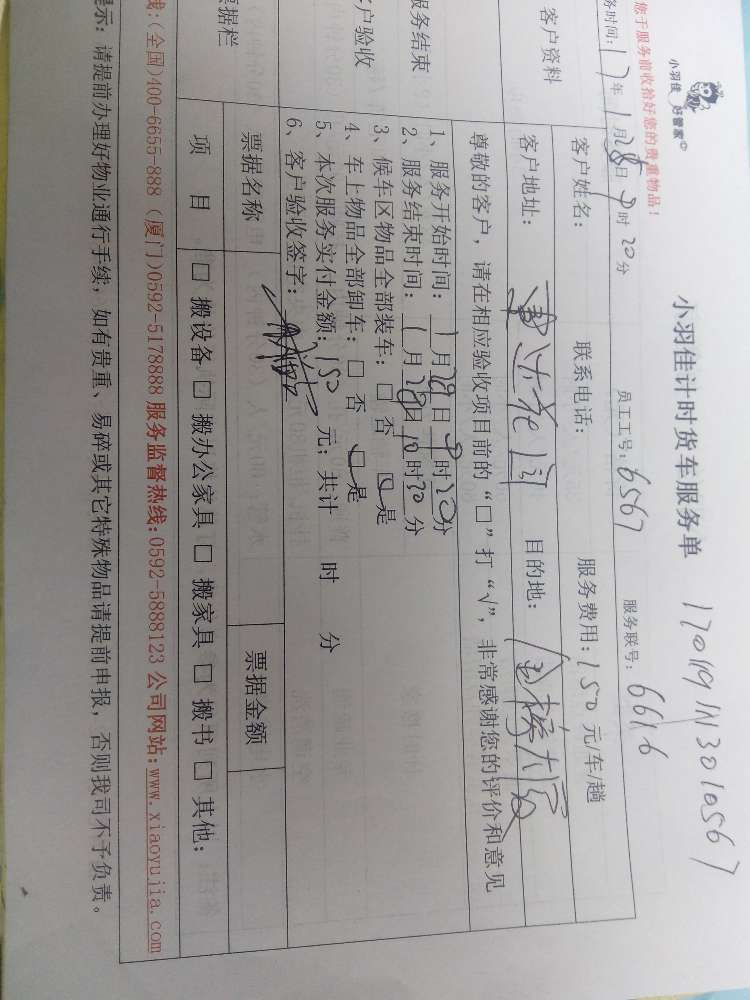 小羽佳 好管家©
小羽佳计时货车服务单 1701191113010567
您于服务前收拾好您的贵重物品!
务时间:17年1月28日9时20分 员工工号:6567 服务联号:6616
客户资料
客户姓名: 联系电话: 服务费用:150元/车/趟
客户地址: 目的地:
服务结束
尊敬的客户,请在相应验收项目前的“□”打“√”,非常感谢您的评价和意见
客户验收
1、服务开始时间:1月28日9时20分
2、服务结束时间:1月28日10时20分
3、候车区物品全部装车:□ 否 □ 是
4、车上物品全部卸车:□ 否 □ 是
5、本次服务实付金额:150元;共计 时 分
6、客户验收签字:
票据栏
票据名称 票据金额
项 目 □ 搬设备 □ 搬办公家具 □ 搬家具 □ 搬书 □ 其他:
线:(全国)400-6655-888 (厦门)0592-5178888 服务监督热线:0592-5888123 公司网站:www.xiaoyujia.com
提示:请提前办理好物业通行手续,如有贵重、易碎或其它特殊物品请提前申报,否则我司不予负责。